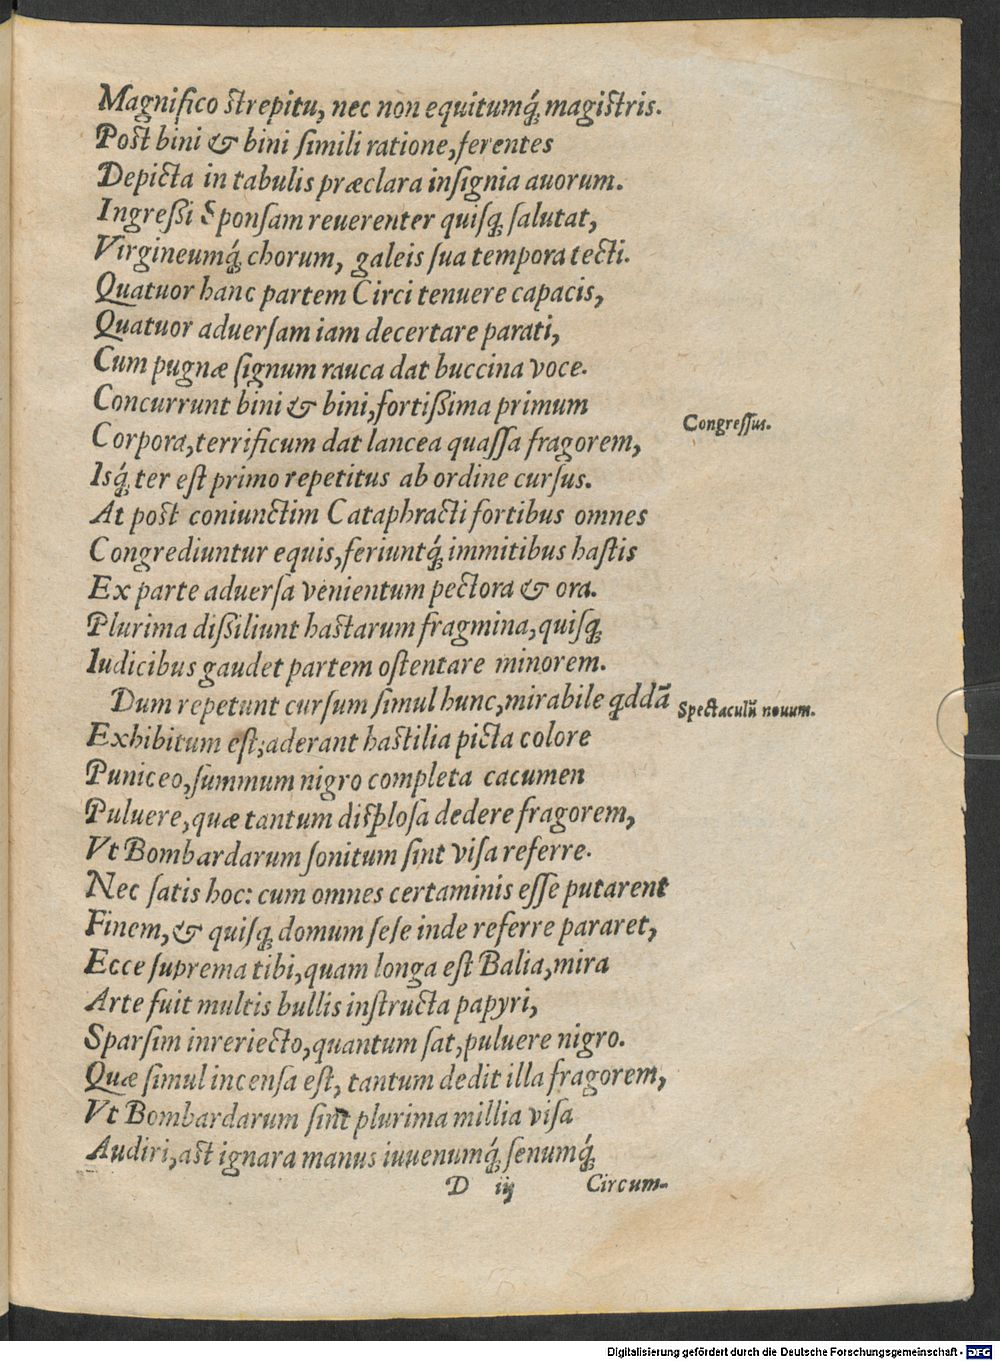 Magnifico strepitu, nec non equitumq́; magistris.
Post bini & bini simili ratione, ferentes
Depicta in tabulis præclara insignia auorum.
Ingreßi Sponsam reuerenter quisq; salutat,
Virgineumq́; chorum, galeis sua tempora tecti.
Quatuor hanc partem Circi tenuere capacis,
Quatuor aduersam iam decertare parati,
Cum pugnæ signum rauca dat buccina voce.
Concurrunt bini & bini, fortißima primum
Congressus.
Corpora, terrificum dat lancea quassa fragorem,
Isq́; ter est primo repetitus ab ordine cursus.
At post coniunctim Cataphracti fortibus omnes
Congrediuntur equis, feriuntq́; immitibus hastis
Ex parte aduersa venientum pectora & ora.
Plurima dißiliunt hastarum fragmina, quisq;
Iudicibus gaudet partem ostentare minorem.
Dum repetunt cursum simul hunc, mirabile qddã
Spectaculũ nouum.
Exhibitum est; aderant hastilia picta colore
Puniceo, summum nigro completa cacumen
Puluere, quæ tantum displosa dedere fragorem,
Vt Bombardarum sonitum sint visa referre.
Nec satis hoc: cum omnes certaminis esse putarent
Finem, & quisq; domum sese inde referre pararet,
Ecce suprema tibi, quam longa est Balia, mira
Arte fuit multis bullis instructa papyri,
Sparsim inreriecto, quantum sat, puluere nigro.
Quæ simul incensa est, tantum dedit illa fragorem,
Vt Bombardarum sint plurima millia visa
Audiri, ast ignara manus iuuenumq́; senumq́;
D iij
Circum-
Digitalisierung gefördert durch die Deutsche Forschungsgemeinschaft - DFG